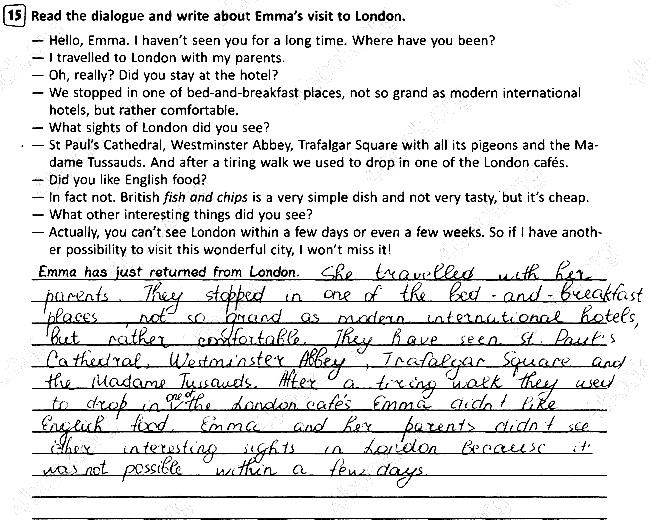 15 Read the dialogue and write about Emma's visit to London.
— Hello, Emma. I haven't seen you for a long time. Where have you been?
— I travelled to London with my parents.
— Oh, really? Did you stay at the hotel?
— We stopped in one of bed-and-breakfast places, not so grand as modern international
hotels, but rather comfortable.
— What sights of London did you see?
— St Paul's Cathedral, Westminster Abbey, Trafalgar Square with all its pigeons and the Ma-
dame Tussauds. And after a tiring walk we used to drop in one of the London cafés.
— Did you like English food?
— In fact not. British fish and chips is a very simple dish and not very tasty, but it's cheap.
— What other interesting things did you see?
— Actually, you can't see London within a few days or even a few weeks. So if I have anoth-
er possibility to visit this wonderful city, I won't miss it!
Emma has just returned from London. She travelled with her
parents. They stopped in one of the bed-and-breakfast
places not so grand as modern international hotels,
but rather comfortable. They have seen St. Paul's
Cathedral, Westminster Abbey, Trafalgar Square and
the Madame Tussauds. After a tiring walk they used
to drop in one of the London cafés Emma didn't like
English food. Emma and her parents didn't see
other interesting sights in London because it
was not possible within a few days.